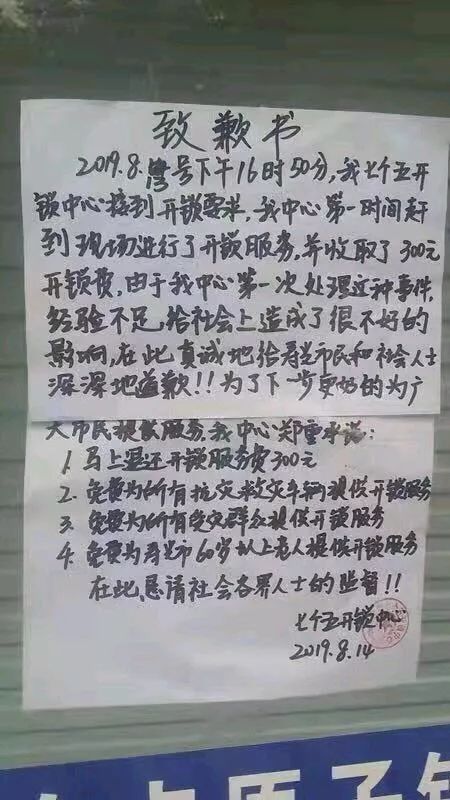 致歉书
2019.8.号下午16时50分,我七个五开
锁中心接到开锁要求,我中心第一时间赶
到现场进行了开锁服务,并收取了300元
开锁费,由于我中心第一次处理这种事件,
经验不足,给社会上造成了很不好的
影响,在此真诚地给寿光市民和社会人士
深深地道歉!!为了下一步更好的为广
大市民提供服务,我中心郑重承诺:
1. 马上退还开锁服务费300元
2. 免费为所有抗灾救灾车辆提供开锁服务
3. 免费为所有受灾群众提供开锁服务
4. 免费为寿光市60岁以上老人提供开锁服务
在此,恳请社会各界人士的监督!!
七个五开锁中心
2019.8.14